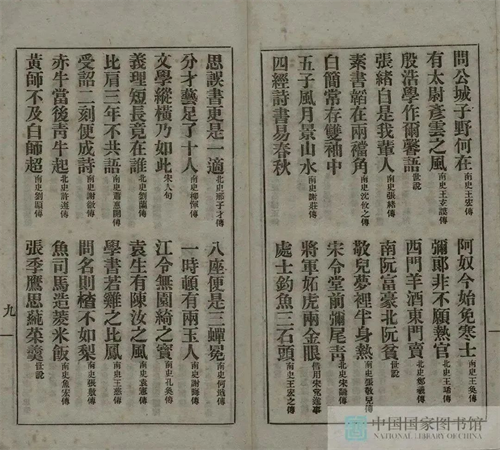 問公城子野何在 南史王宏傳 阿奴今始免寒士 南史王奐傳
有太尉彥雲之風 南史王玄謨傳 彌郎非不願熱官 北史王晞傳
殷浩學作爾馨語 世說 西門羊酒東門賣 北史鄭羲傳
張緒自是我輩人 南史張緒傳 南阮富豪北阮貧 世說
素書韜在兩襠角 南史沈攸之傳 敬兒夢裡半身熱 南史張敬兒傳
白簡常存雙袖中 宋令堂前彌尾青
五子風月景山水 南史謝莊傳 將軍妬虎兩金眼
四經詩書易春秋 處士釣魚三石頭 南史王宏之傳
思誤書更是一適 北史邢子才傳 八座便是三蟬冕 南史何戢傳
分才藝足了十人 南史柳惲傳 一時頓有兩玉人 南史謝晦傳
文學縱橫乃如此 宋人句 江令無園綺之實 南史孔奐傳
義理短長竟在誰 北史劉蘭傳 袁生有陳汝之風 南史袁憲傳
比肩三年不共語 南史蕭惠開傳 學書若雞之比鳳 南史王慈傳
受詔二刻便成詩 問名則樝不如梨 南史張敷傳
赤牛當後青牛起 北史許遵傳 魚司馬造菱米飯 南史魚宏傳
黃師不及白師超 張季鷹思蓴菜羹 世說
九
中国国家图书馆
NATIONAL LIBRARY OF CHINA